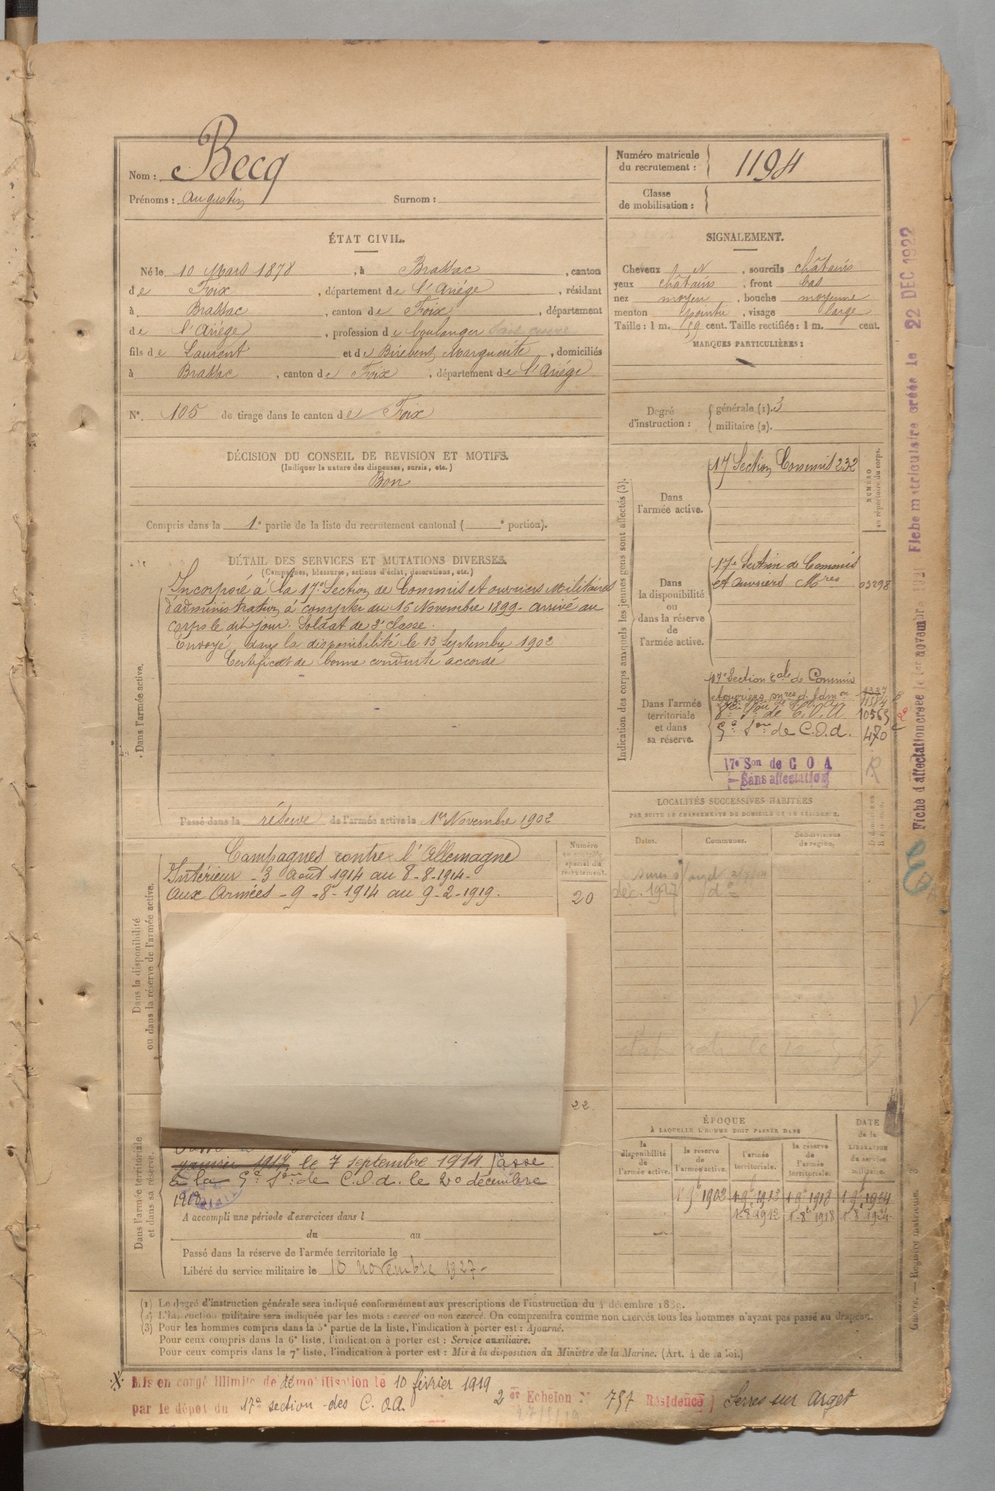 Nom : Becq
Prénoms : Augustin Surnom :
Numéro matricule
du recrutement : 1194
Classe
de mobilisation :
ÉTAT CIVIL.
Né le 10 Mars 1878, à Brassac, canton
de Foix, département de l'Ariège, résidant
à Brassac, canton de Foix, département
de l'Ariège, profession de boulanger
fils de Laurent et de Birebent Marguerite, domiciliés
à Brassac, canton de Foix, département de l'Ariège
N° 105 de tirage dans le canton de Foix
SIGNALEMENT.
Cheveux , sourcils châtains
yeux châtains, front bas
nez moyen, bouche moyenne
menton pointu, visage large
Taille : 1 m. 59 cent. Taille rectifiée : 1 m. cent.
MARQUES PARTICULIÈRES :
Degré
d'instruction :
générale (1). 3
militaire (2).
DÉCISION DU CONSEIL DE REVISION ET MOTIFS.
(Indiquer la nature des dispenses, sursis, etc.)
Bon
Compris dans la 1e partie de la liste du recrutement cantonal ( e portion).
DÉTAIL DES SERVICES ET MUTATIONS DIVERSES.
(Campagnes, blessures, actions d'éclat, décorations, etc.)
Dans l'armée active.
Incorporé à la 17e Section de Commis et ouvriers militaires
d'administration à compter du 16 Novembre 1899. arrivé au
corps le dit jour. Soldat de 2e classe.
Envoyé dans la disponibilité le 13 Septembre 1902
Certificat de bonne conduite accordé
Passé dans la réserve de l'armée active le 1er Novembre 1902
Indication des corps auxquels les jeunes gens sont affectés (3).
NUMÉRO
au répertoire du corps.
Dans
l'armée active.
17 Section Commis 232
Dans
la disponibilité
ou
dans la réserve de
l'armée active.
17e Section de Commis
et ouvriers Mres 03298
Dans l'armée
territoriale
et dans
sa réserve.
17e Section tale de Commis
10565
5e Son de C.O.A. 470
17e Son de C O A
Sans affectation
R
LOCALITÉS SUCCESSIVES HABITÉES
PAR SUITE DE CHANGEMENT DE DOMICILE ET DE RÉSIDENCE.
Dates.
Communes.
Subdivisions
de région.
déc. 1927 do
Dans la disponibilité
ou dans la réserve de l'armée active.
Campagnes contre l'Allemagne
Intérieur - 3 Août 1914 au 8-8-1914-
Aux Armées - 9-8-1914 au 9-2-1919.
20
22
Dans l'armée territoriale
et dans sa réserve.
le 7 septembre 1914 Passé
à la 5e Son de C.O.A. le 20 décembre
A accompli une période d'exercices dans l
du au
Passé dans la réserve de l'armée territoriale le
Libéré du service militaire le 10 novembre 1927-
ÉPOQUE
À LAQUELLE L'HOMME DOIT PASSER DANS
la
disponibilité
de l'armée active.
la réserve
de
l'armée active.
l'armée
territoriale.
la réserve
de
l'armée
territoriale.
DATE
de la
LIBÉRATION
du service
militaire.
1 9e 1902 1 9e 1912 1 9e 1918 1 9e 1924
1 8e 1912 1 8e 1918 1 8e 1924
(1) Le degré d'instruction générale sera indiqué conformément aux prescriptions de l'instruction du 4 décembre 1889.
(2) L'instruction militaire sera indiquée par les mots : exercé ou non exercé. On comprendra comme non exercés tous les hommes n'ayant pas passé au drapeau.
(3) Pour les hommes compris dans la 5e partie de la liste, l'indication à porter est : Ajourné.
Pour ceux compris dans la 6e liste, l'indication à porter est : Service auxiliaire.
Pour ceux compris dans la 7e liste, l'indication à porter est : Mis à la disposition du Ministre de la Marine. (Art. 4 de la loi.)
Mis en congé illimité de démobilisation le 10 février 1919
par le dépôt du 17e section des C.O.A.
2er Echelon N° 757 Résidence Serres sur Arget
Fiche matriculaire créée le 22 DEC 1922